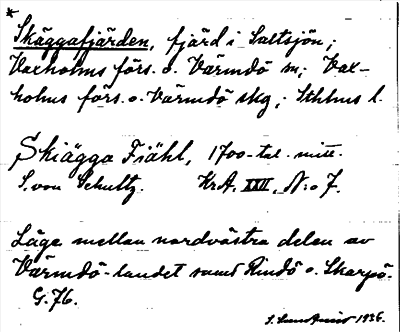 *
Skäggafjärden, fjärd i Saltsjön;
Vaxholms förs. o. Värmdö sn; Vax-
holms förs. o. Värmdö skg; Sthlms l.
Skiägga Fiähl, 1700-tal. mitt.
S. von Schultz. KrA. XXII, N:o 7.
Läge mellan nordvästra delen av
Värmdö-landet samt Rindö o. Skarpö.
G. 76.
1936.